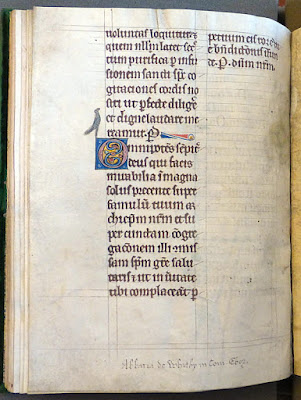 uoluntas loquitur et
quem nllm latet secre
tum purifica p infu
sionem sancti sps co
gitaciones cordis nos
tri ut pfecte dilige
re et digne laudare me
reamur. P.
Omnipotes sempit
deus qui facis
mirabilia magna
solus pretende super
famulum tuum ar
chiepm nrm et su
per cunctam cogre
gaconem illi comis
sam spm gre salu
taris et ut in ueritate
tibi complaceat p
petuum eis rorem
bndictionis infun
de. P. dum nrm.
Abbatia de Whitby in Com Ebor.